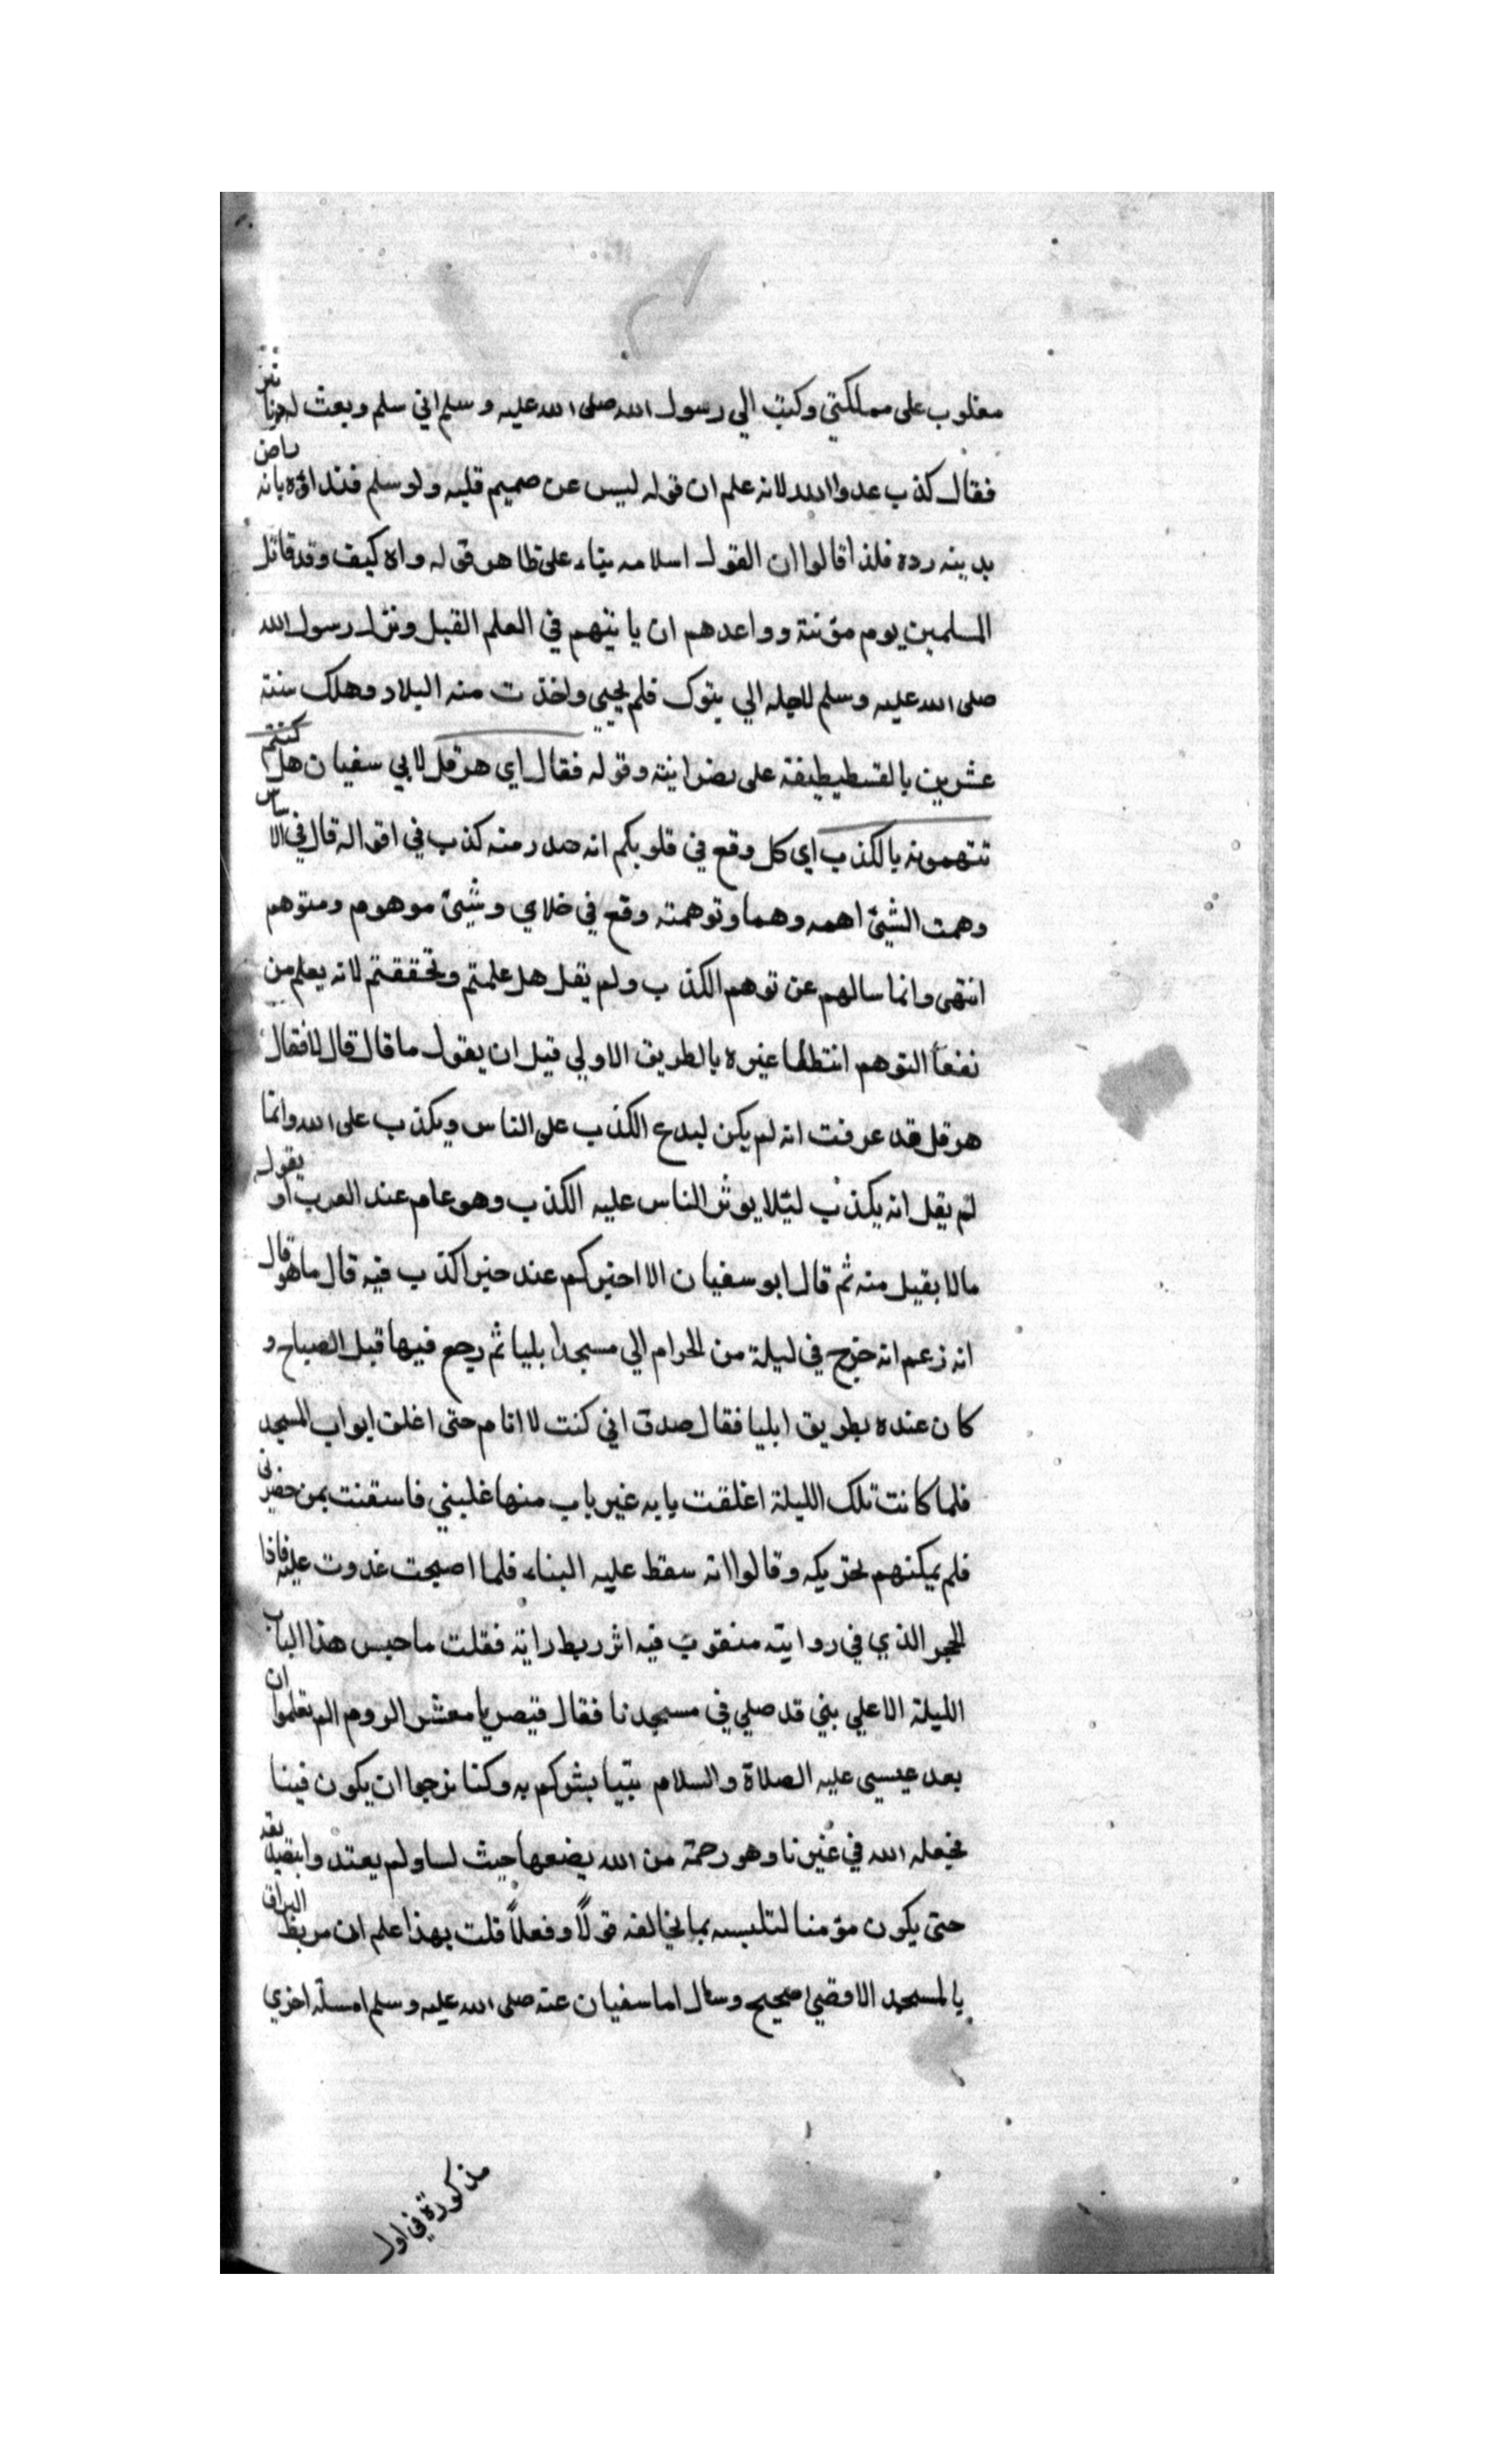 مغلوب على مملكتي وكتب الي رسول الله صلى الله عليه وسلم اني سلم وبعث له دنانير
فقال كذب عدوا الله لانه علم ان قوله ليس عن صميم قلبه ولو سلم فنداؤه بانه راض
بدينه رده فلذا قالوا ان القول اسلامه بناء على ظاهر قوله واه كيف وقد قاتل
المسلمين يوم مؤتة وواعدهم ان ياتيهم في العلم القبل ونزل رسول الله
صلى الله عليه وسلم لاجله الي تبوك فلم يجيي واخذت منه البلاد وهلك سنة
عشرين بالقسطيطيفة على نصرانيته وقوله فقال اي هرقل لابي سفيان هل كنتم
تتهمونه بالكذب اي كل وقع في قلوبكم انه صدر منه كذب في اقواله قال في الاساس
وهمت الشيئ اهمه وهما وتوهمته وقع في خلاي وشيئ موهوم ومتوهم
انتهى وانما سالهم عن توهم الكذب ولم يقل هل علمتم وتحققتم لانه يعلم من
نفعا التوهم انتطفا غيره بالطريق الاولي قبل ان يقول ما قال قال لا فقال
هرقل قد عرفت انه لم يكن ليدع الكذب على الناس ويكذب على الله وانما
لم يقل انه يكذب ليلا يوثر الناس عليه الكذب وهو عام عند العرب او يقول
مالا يقبل منه ثم قال ابو سفيان الا اخبركم عند خبرا كذب فيه قال ما هو قال
انه زعم انه خرج في ليلة من الحرام الي مسجد ايليا ثم رجع فيها قبل الصباح و
كان عنده بطريق ايليا فقال صدق اني كنت لا انام حتى اغلق ابواب المسجد
فلما كانت تلك الليلة اغلقت بابه غير باب منها غلبني فاستعنت بمن حضرني
فلم يمكنهم تحريكه وقالوا انه سقط عليه البناء فلما اصبحت غدوت عليه فاذا
الحجر الذي في روايته منقوب فيه اثر ربط راية فقلت ما حبس هذا الباب
الليلة الا علي بني قد صلي في مسجدنا فقال قيصر يا معشر الروم الم تعلموا ان
بعد عيسي عليه الصلاة والسلام نبيا بشركم به وكنا نرجوا ان يكون فينا
فجعله الله في غيرنا وهو رحمة من الله يضعها حيث لسا ولم يعتد وابتصديقه
حتى يكون مؤمنا لتلبسه بما يخالفه قولاً وفعلاً قلت بهذا علم ان مربط البراق
بالمسجد الاقصي صحيح وسال اما سفيان عنه صلى الله عليه وسلم امسلة اخري
مذكورة في اول